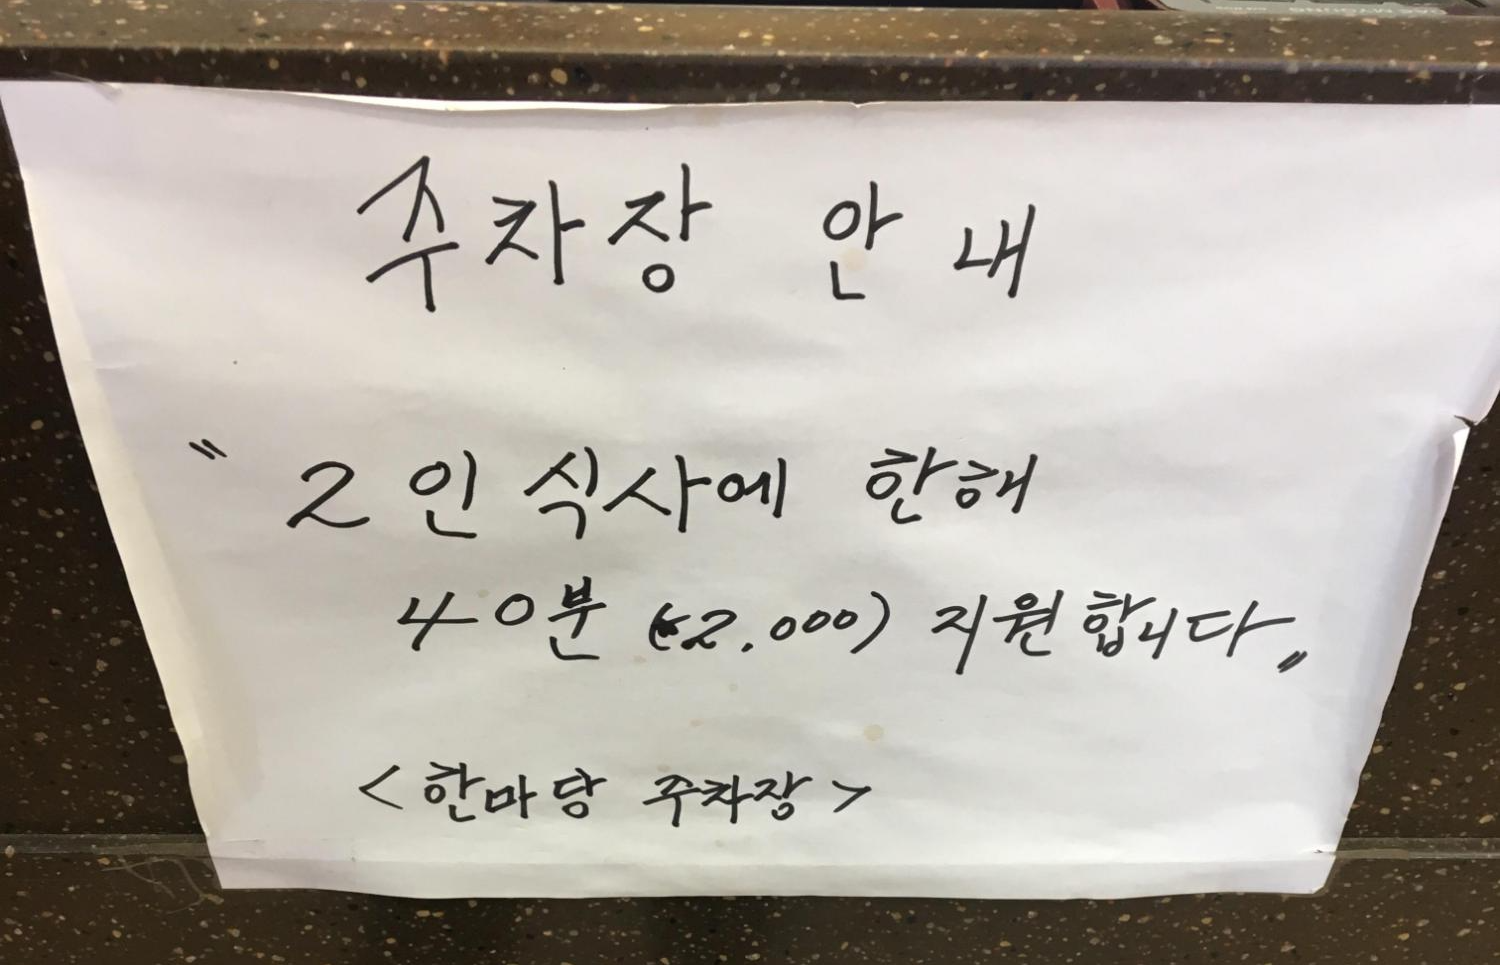 주차장 안내
"2인 식사에 한해
40분 (₩2,000) 지원합니다"
<한마당 주차장>